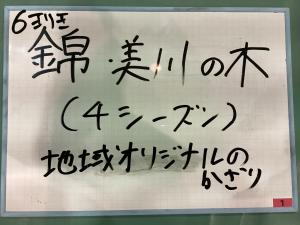 6きりき
錦・美川の木
(4シーズン)
地域オリジナルの
かざり
1